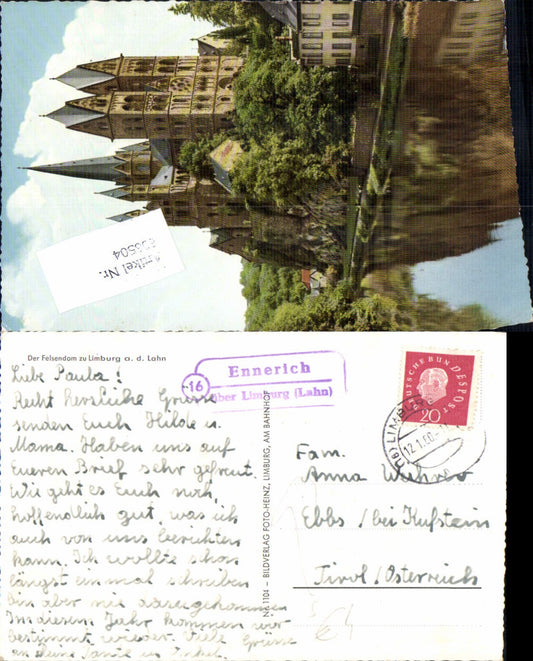 Artikel Nr.
Der Felsendom zu Limburg a. d. Lahn
Liebe Paula!
Recht herzliche Grüsse
senden Euch Hilde u.
Mama. Haben uns auf
eueren Brief sehr gefreut.
Wie geht es Euch noch,
hoffendlich gut, was ich
auch von uns berichten
kann. Ich wollte schon
längst einmal schreiben
bin aber nie dazugekommen
Im diesem Jahr kommen wir
bestimmt wieder. Viele Grüsse
an deine Tante u. Onkel.
16
Ennerich
über Limburg (Lahn)
Nr. 1104 – BILDVERLAG FOTO-HEINZ, LIMBURG, AM BAHNHOF
DEUTSCHE BUNDESPOST
20
(16) LIMBURG
12.1.60
Fam.
Anna
Ebbs / bei Kufstein
Tirol / Österreich